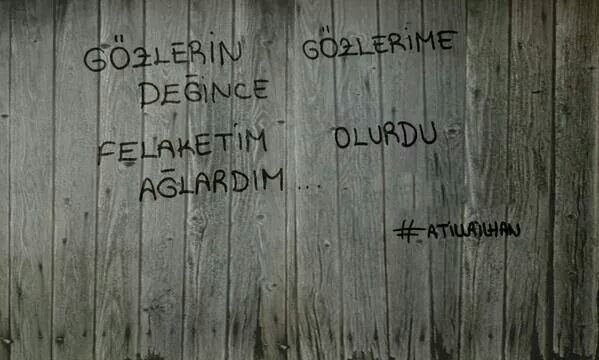 GÖZLERİN GÖZLERİME
DEĞİNCE
FELAKETİM OLURDU
AĞLARDIM ...
#ATİLLAİLHAN